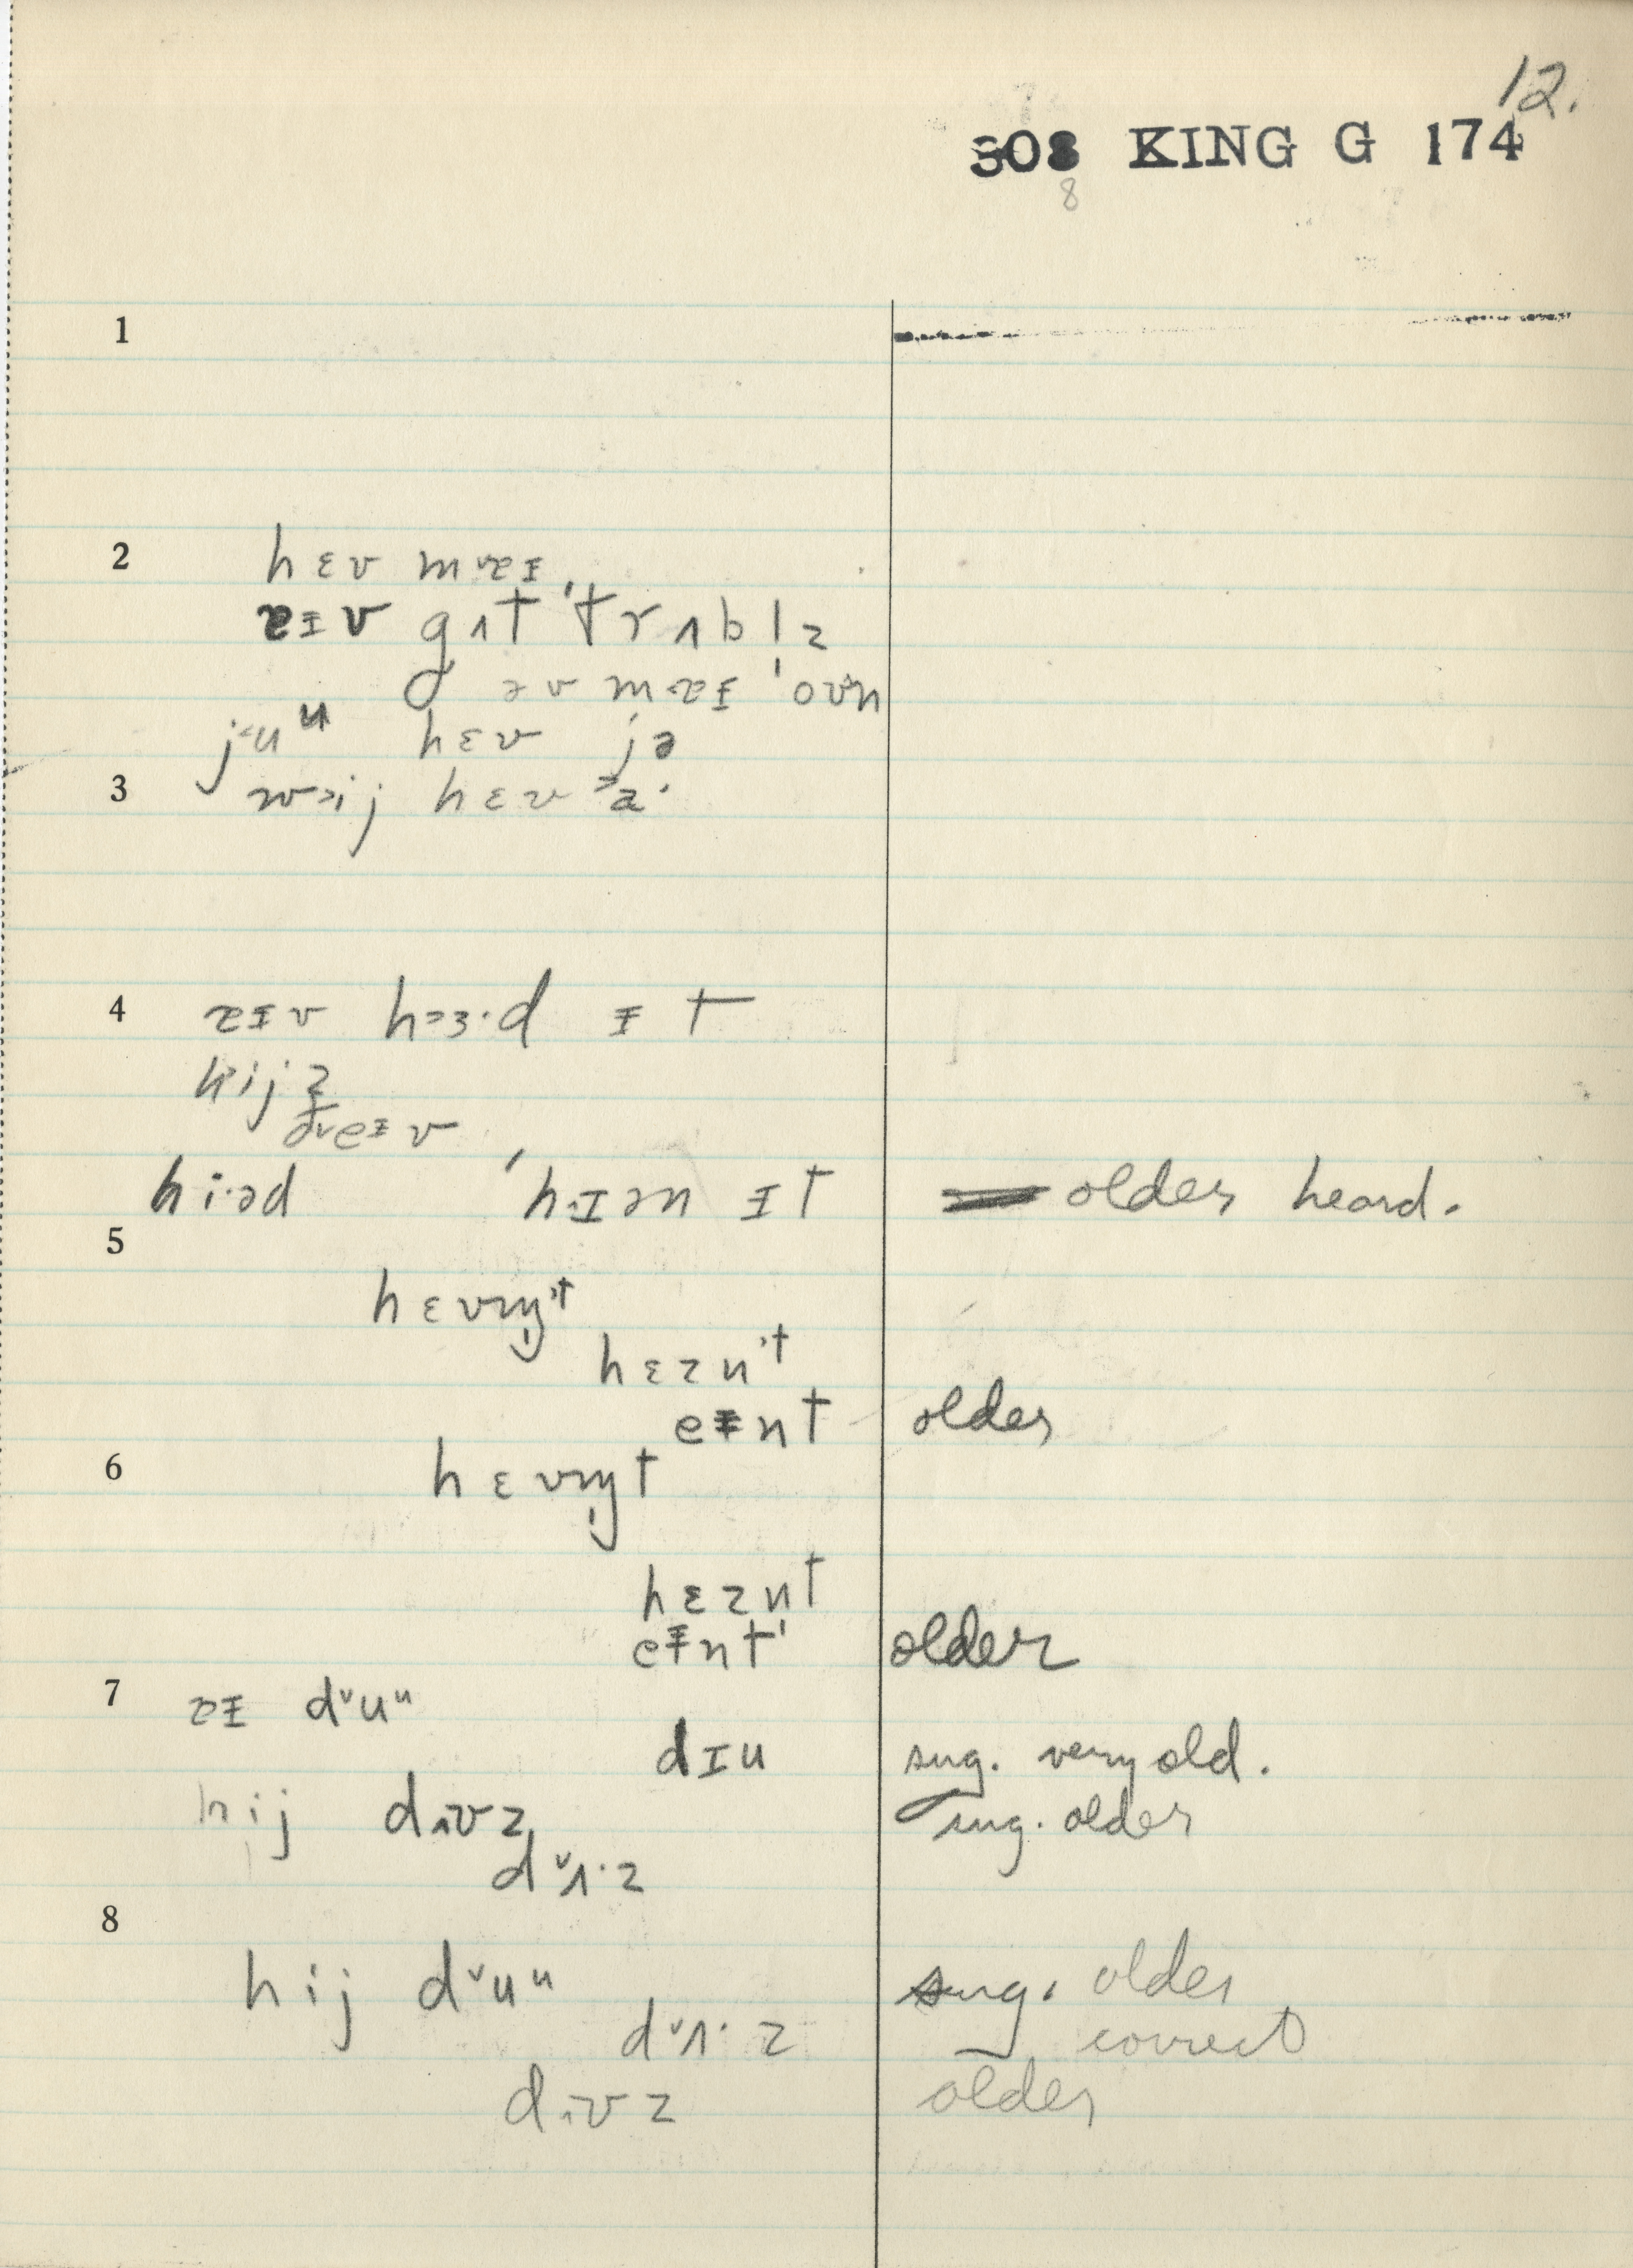 12.
308 KING G 174
8
1
2 hɛv mɐɪ
ɐɪv gʌt 'trʌbl̩z
əv mɐɪ 'oʊn
jᵊuᵘ hɛv jə
3 wᵊij hɛv
4 ɐɪv hɜ·d ɪt
hij z
ðeɪv
hi·əd 'hɪən ɪt older heard.
5
hɛvn̩t
hɛznt
eɪnt older
6 hɛvn̩t
hɛznt
eɪnt older
7 ɐɪ dᵛuᵘ
dɪu sug. very old.
hij dʌvz sug. older
dᵛʌ·z
8
hij dᵛuᵘ sug. older
dᵛʌ·z correct
dʌvz older